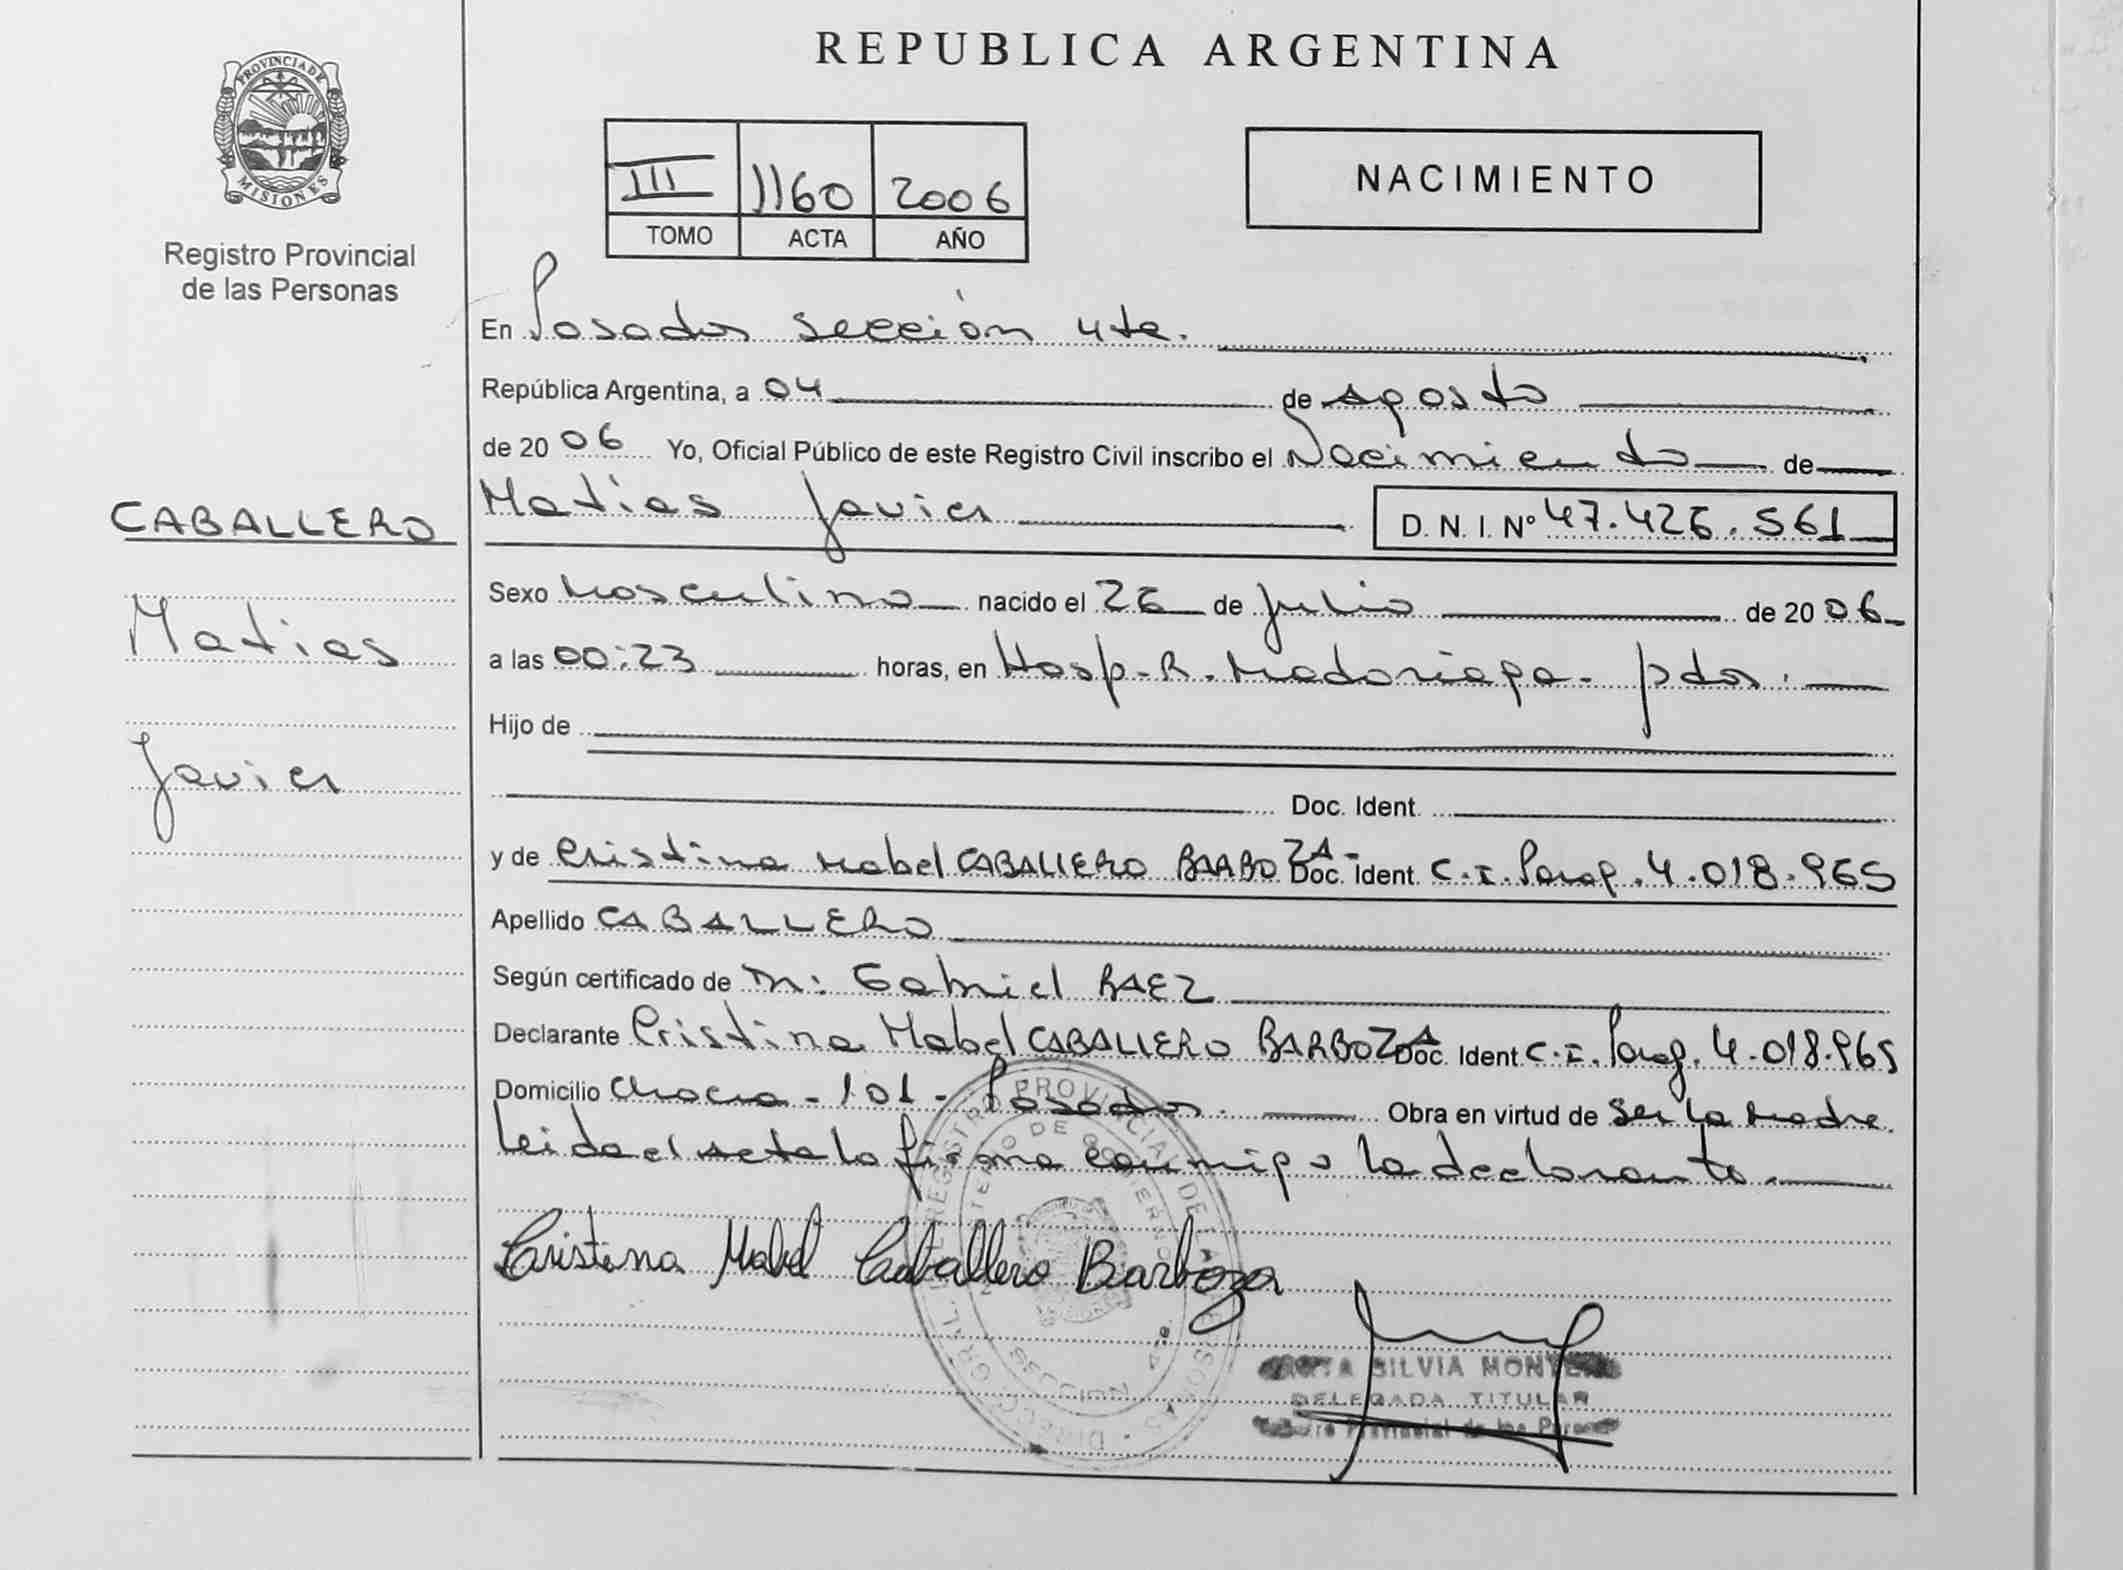 REPUBLICA ARGENTINA
PROVINCIA DE MISIONES
Registro Provincial
de las Personas
III 1160 2006
TOMO ACTA AÑO
NACIMIENTO
En Posadas sección 4ta.
República Argentina, a 04 de agosto
de 2006 Yo, Oficial Público de este Registro Civil inscribo el Nacimiento de
CABALLERO
Matias
Javier
Matias Javier D. N. I. Nº 47.426.561
Sexo Masculino nacido el 26 de Julio de 2006
a las 00:23 horas, en Hosp. R. Madariaga - pdas.
Hijo de
Doc. Ident.
y de Cristina Mabel CABALLERO BARBOZA - Doc. Ident. C.I. Parag. 4.018.965
Apellido CABALLERO
Según certificado de m: Gabriel BAEZ
Declarante Cristina Mabel CABALLERO BARBOZA Doc. Ident C.I. Parag. 4.018.965
Domicilio Chacra - 101 - Posadas. Obra en virtud de ser la madre.
Leida el acta la firma conmigo la declarante.
Cristina Mabel Caballero Barboza
SILVIA
DELEGADA TITULAR
Provincial de las